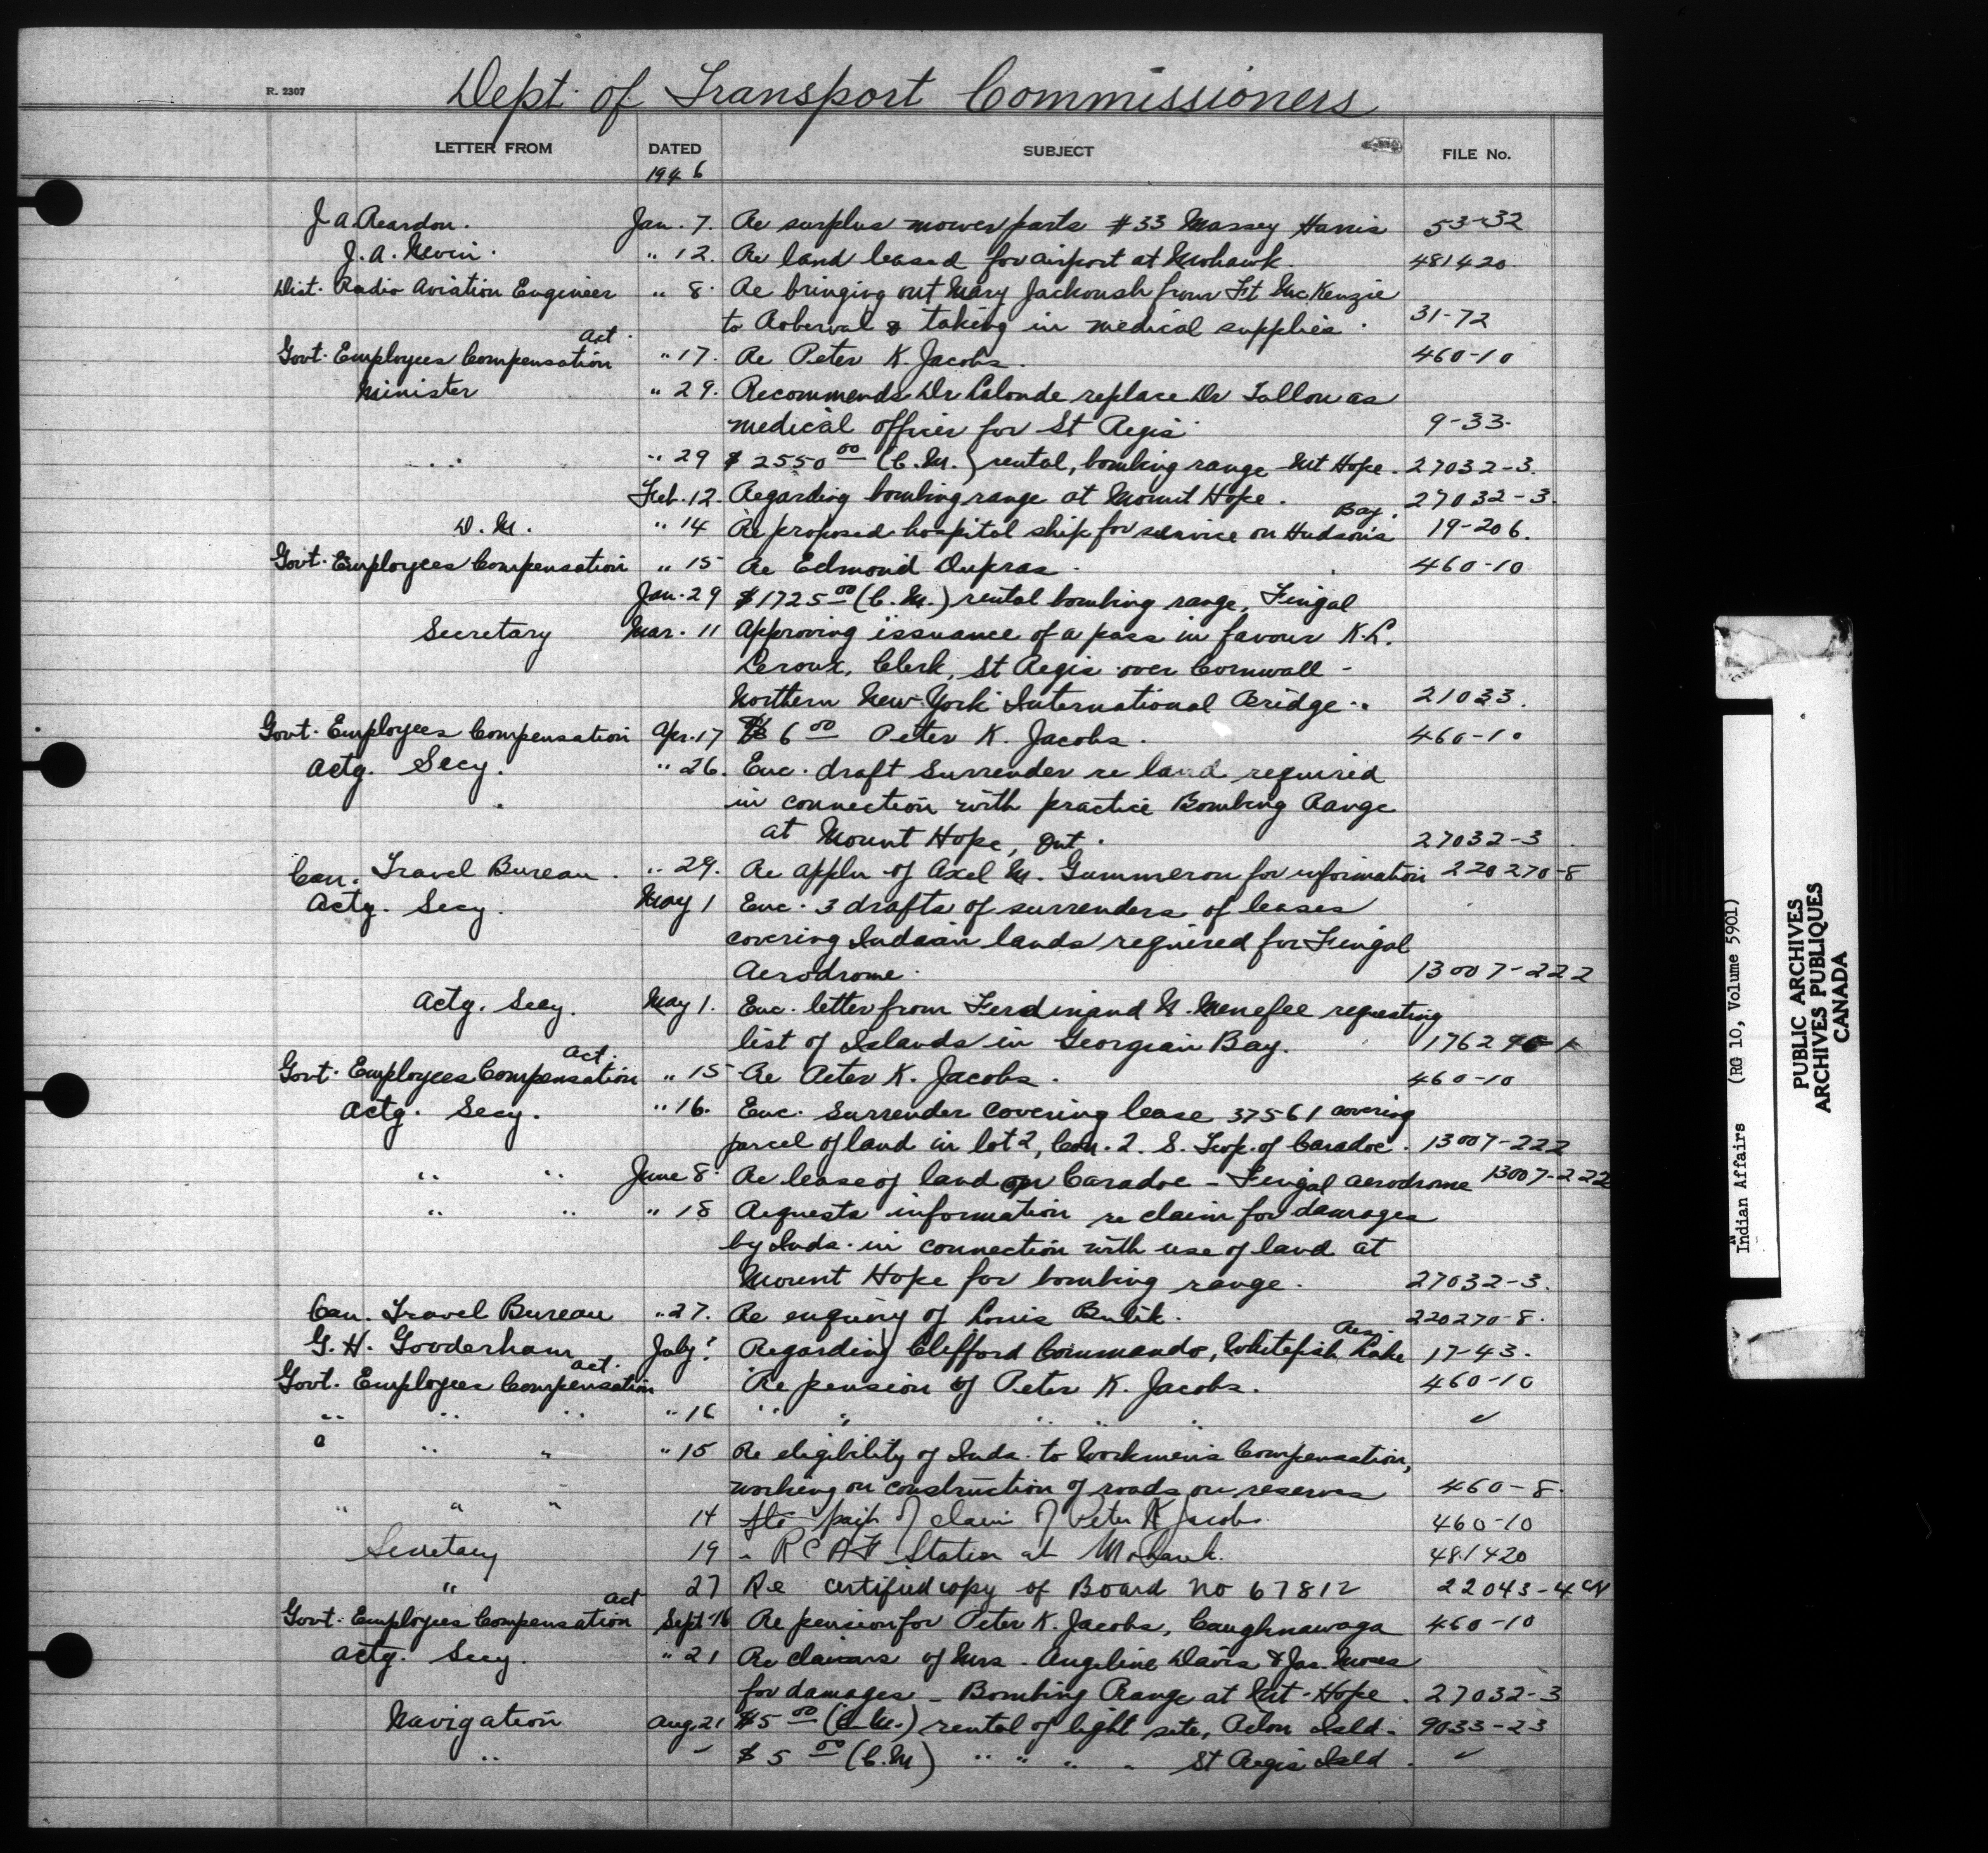 R. 2307
Dept. of Transport Commissioners
LETTER FROM DATED SUBJECT FILE No.
1946
J. A. Reardon. Jan. 7. Re surplus mower parts #33 Massey Harris 53-32
J. A. Nevin. " 12. Re land leased for airport at Mohawk. 481420
Dist. Radio Aviation Engineer " 8. Re bringing out Mary Jackoush from Ft McKenzie
to Roberval & taking in medical supplies. 31-72
Govt. Employees Compensation Act. " 17. Re Peter K. Jacobs. 460-10
Minister " 29. Recommends Dr Lalonde replace Dr Fallon as
medical officer for St Regis. 9-33.
" " 29 $2550 00 (C.M.) rental, bombing range Mt Hope. 27032-3.
Feb. 12. Regarding bombing range at Mount Hope. 27032-3.
D. M. " 14 Re proposed hospital ship for service on Hudson's Bay. 19-206.
Govt. Employees Compensation " 15 Re Edmond Dupras. 460-10
Jan. 29 $1725 00 (C.M.) rental bombing range, Fingal
Secretary Mar. 11 Approving issuance of a pass in favour K.L.
Leroux, Clerk, St Regis over Cornwall -
Northern New York International Bridge. 21033.
Govt. Employees Compensation Apr. 17 $6 00 Peter K. Jacobs. 460-10
Actg. Secy. " 26. Enc. draft surrender re land required
in connection with practice Bombing Range
at Mount Hope, Ont. 27032-3.
Can. Travel Bureau. " 29. Re appln of Axel M. Gummeron for information 220270-8
Actg. Secy. May 1 Enc. 3 drafts of surrenders of leases
covering Indian lands required for Fingal
Aerodrome. 13007-222
Actg. Secy. May 1. Enc. letter from Ferdinand N. Menefee requesting
list of Islands in Georgian Bay.
Govt. Employees Compensation Act. " 15 Re Peter K. Jacobs. 460-10
Actg. Secy. " 16. Enc. surrender covering lease 37561 covering
parcel of land in lot 2, Con. 2. S. Twp. of Caradoc. 13007-222
" " June 8. Re lease of land on Caradoc - Fingal Aerodrome 13007-222
" " " 18 Requests information re claim for damages
by Inds. in connection with use of land at
Mount Hope for bombing range. 27032-3.
Can. Travel Bureau " 27. Re enquiry of Louis Bulik. 220270-8.
G. H. Gooderham July ? Regarding Clifford Commando, Whitefish Lake Res. 17-43.
Govt. Employees Compensation Act. Re pension of Peter K. Jacobs. 460-10
" " " " 16 " " " " " "
" " " " 15 Re eligibility of Inds. to Workmen's Compensation,
working on construction of roads on reserves 460-8.
" " " 14 payt of claim of Peter K Jacobs 460-10
Secretary 19 " RCAF Station at Mohawk. 481420
" 27 Re certified copy of Board no 67812 22043-4
Govt. Employees Compensation Act Sept 16 Re pension for Peter K. Jacobs, Caughnawaga 460-10
Actg. Secy. " 21 Re claims of Mrs. Angeline Davis & Jas. Moses
for damages - Bombing Range at Mt. Hope. 27032-3
Navigation Aug. 21 $5 00 (C.M.) rental of light site, Isld. 9033-23
" $5 00 (C.M) " " " " St Regis Isld.
Indian Affairs (RG 10, Volume 5901)
PUBLIC ARCHIVES
ARCHIVES PUBLIQUES
CANADA